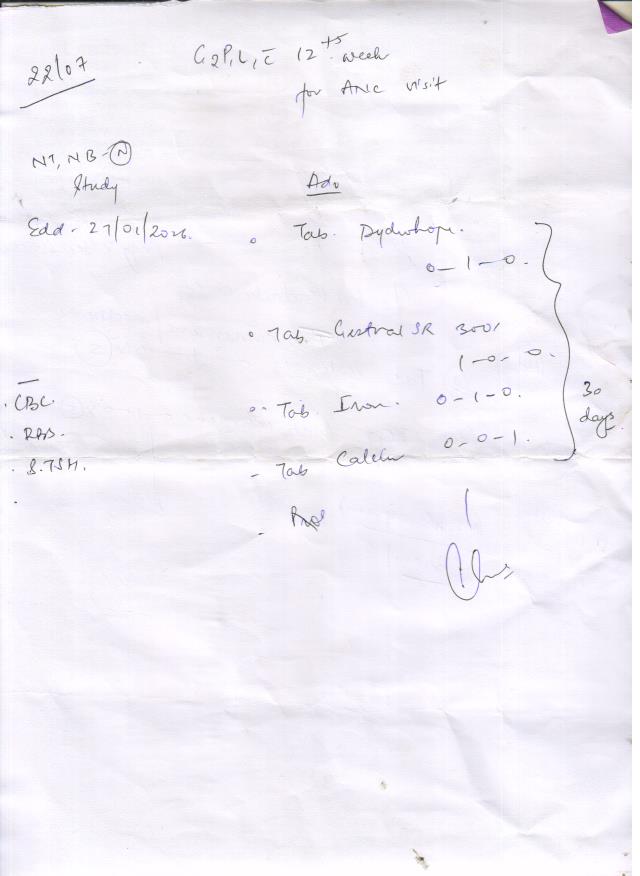 22/07
G2P1L1 c̄ 12+5 week
for ANC visit
NT, NB - N
Study
Edd - 27/01/2026.
Adv
Tab. Dydrohope.
0-1-0.
Tab Gestral SR 300
1-0-0.
Tab Iron. 0-1-0.
Tab Calchu 0-0-1.
30
days.
CBC.
RBS.
S.TSH.